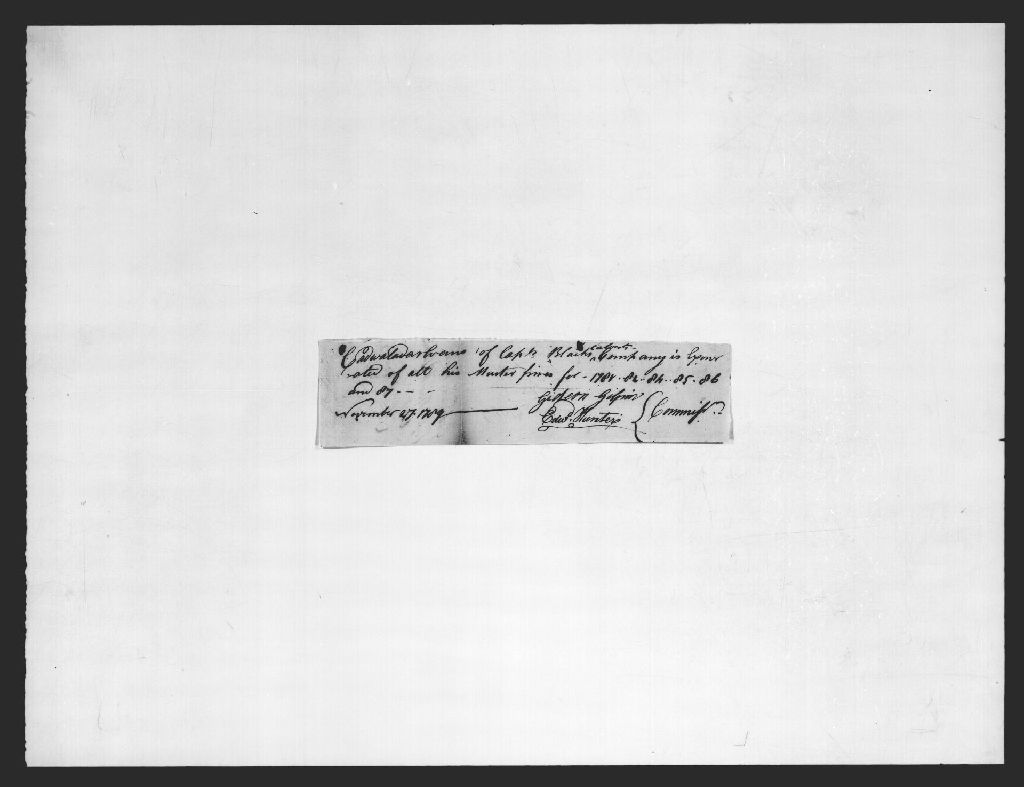 Cadwalader Evans of Capts Blacks Company is Exone
rated of all his Muster fines for - 1782 . 83 . 84 .. 85 .. 86
and 87 - - -
November 27. 1789
Edwd. Hunter
Commiss.